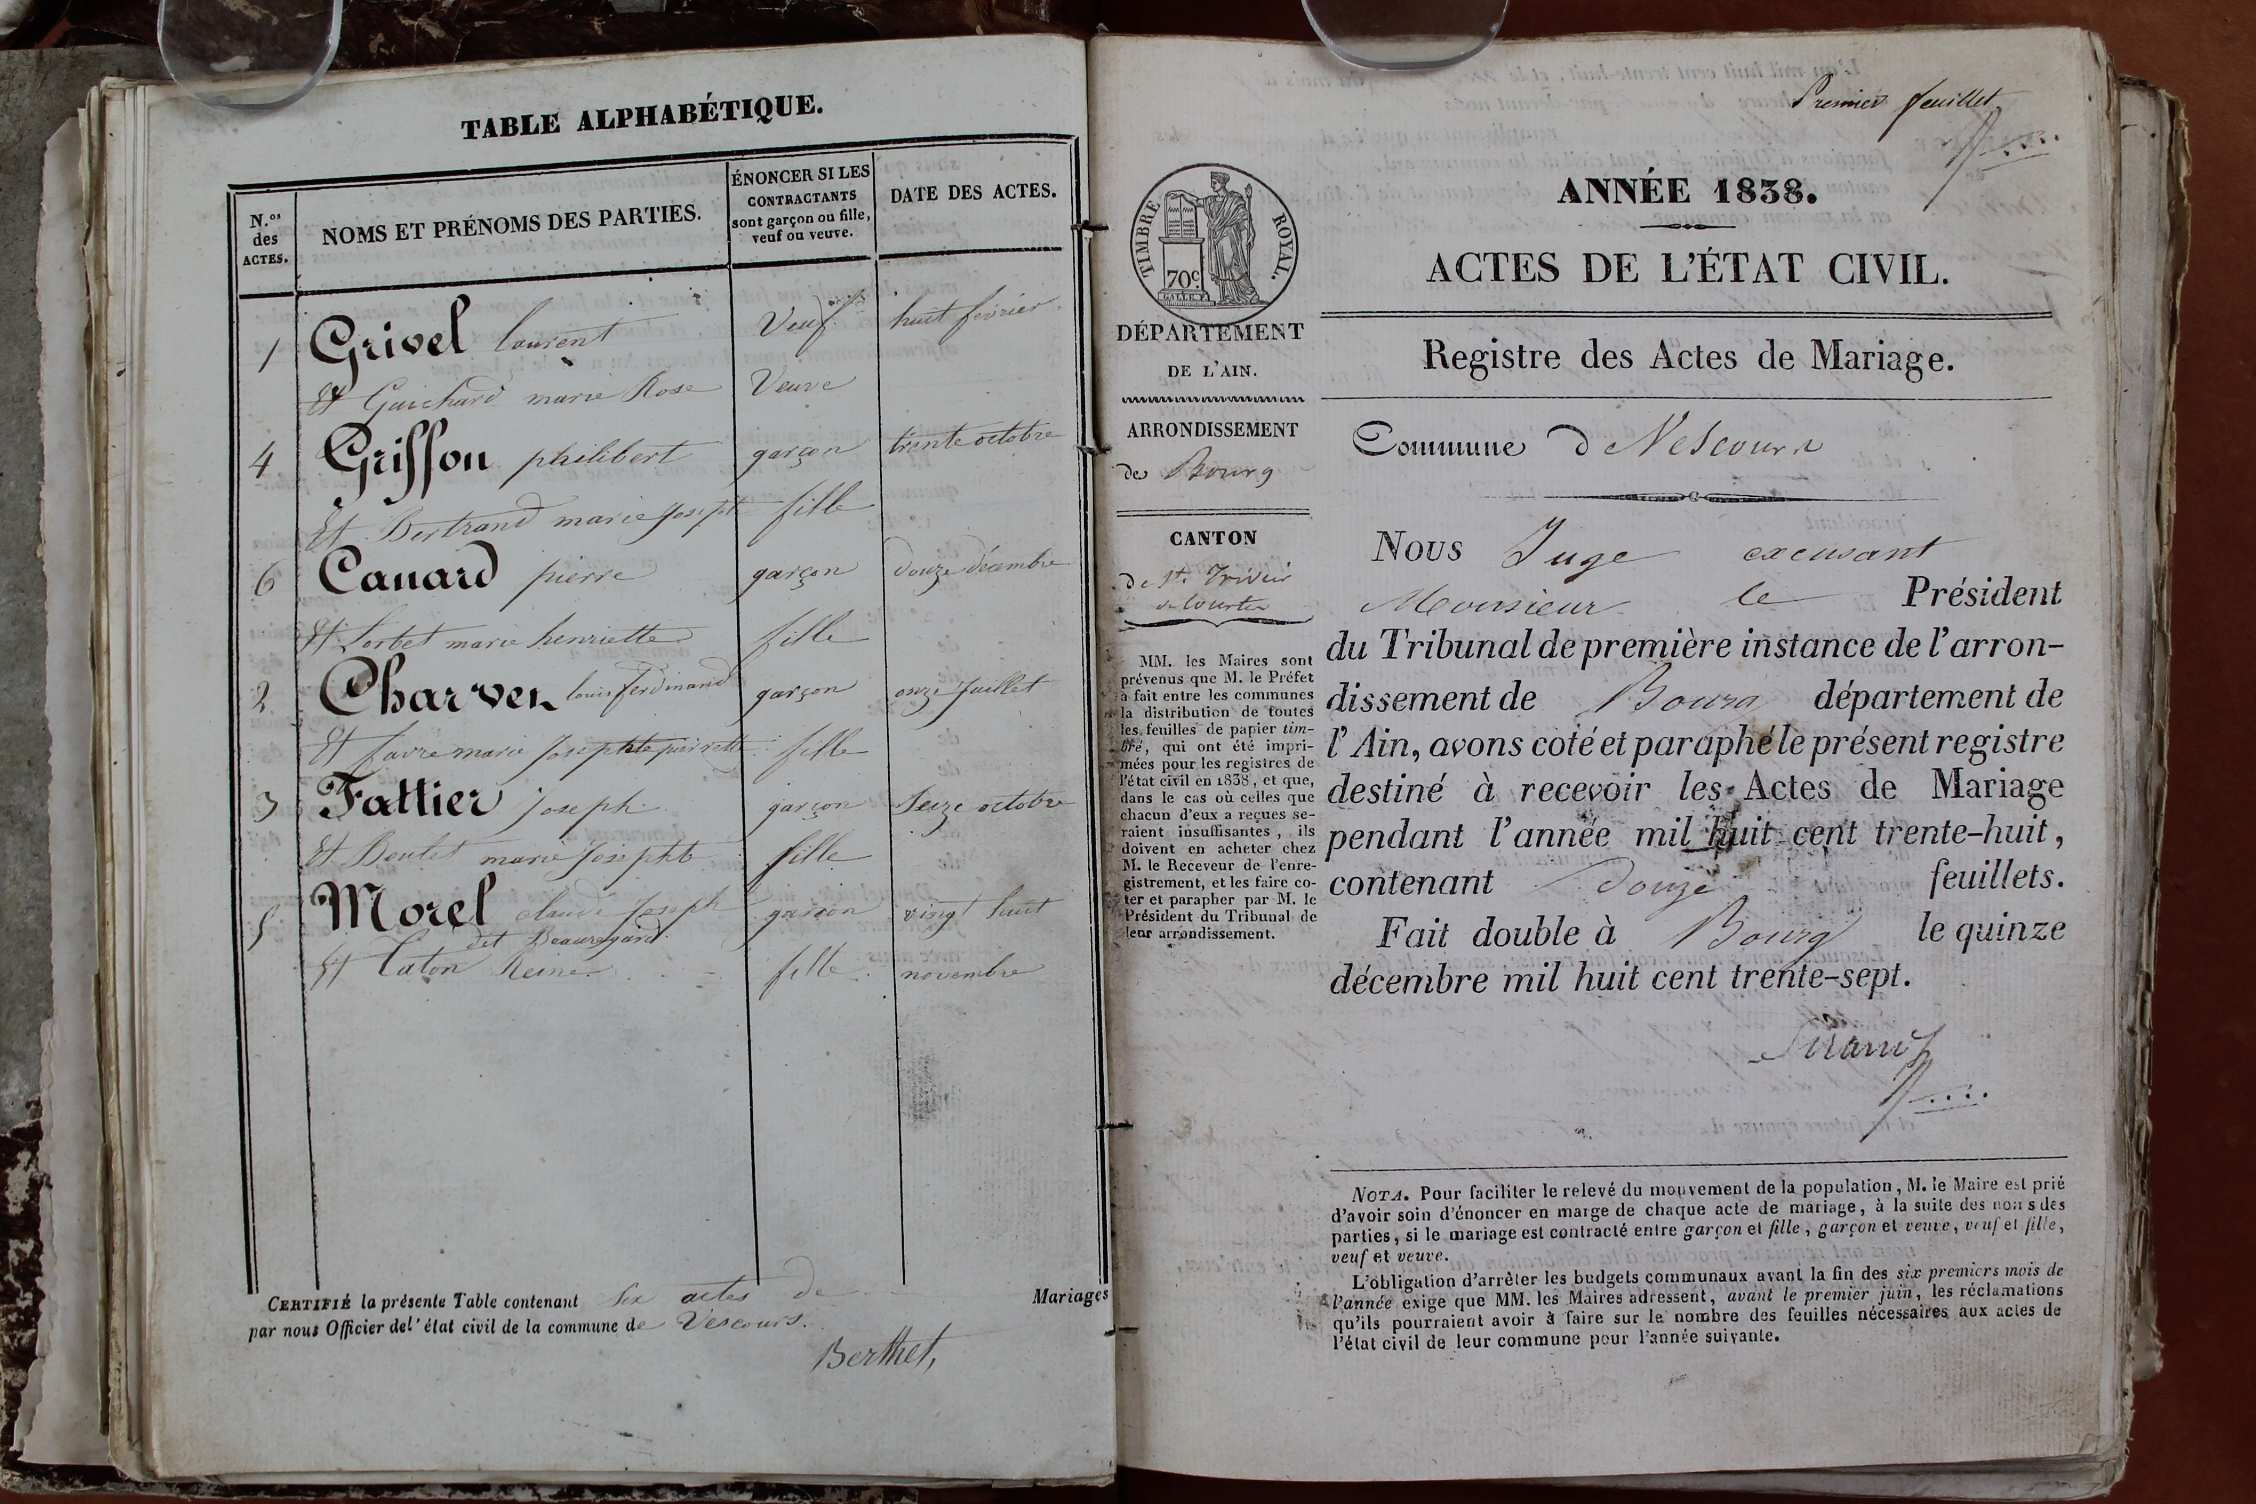 TABLE ALPHABÉTIQUE.
N.os des ACTES.
NOMS ET PRÉNOMS DES PARTIES.
ÉNONCER SI LES
CONTRACTANTS
sont garçon ou fille,
veuf ou veuve.
DATE DES ACTES.
1 Grivel laurent Veuf huit février
Et Guichard marie Rose Veuve
4 Griffon philibert garçon trente octobre
Et Bertrand marie Josepht fille
6 Canard pierre garçon douze décembre
Et Lorbet marie henriette fille
2 Charven louis ferdinand garçon onze Juillet
Et favre marie Josephte pierrette fille
3 Fattier Joseph garçon Seize octobre
Et Boulet marie Josephte fille
5 Morel claude Joseph garçon vingt huit
dit Beauregard
Et Caton Reine fille novembre
CERTIFIÉ la présente Table contenant Six actes de Mariages
par nous Officier del'état civil de la commune de Vescours.
Berthet,
Premier feuillet
TIMBRE ROYAL.
70c.
ANNÉE 1838.
ACTES DE L'ÉTAT CIVIL.
DÉPARTEMENT
DE L'AIN.
ARRONDISSEMENT
de Bourg
CANTON
De St. Trivier
de Courtes
MM. les Maires sont
prévenus que M. le Préfet
a fait entre les communes
la distribution de toutes
les feuilles de papier tim-
bré, qui ont été impri-
mées pour les registres de
l'état civil en 1838, et que,
dans le cas où celles que
chacun d'eux a reçues se-
raient insuffisantes, ils
doivent en acheter chez
M. le Receveur de l'enre-
gistrement, et les faire co-
ter et parapher par M. le
Président du Tribunal de
leur arrondissement.
Registre des Actes de Mariage.
Commune de Vescours
Nous Juge excusant
Monsieur le Président
du Tribunal de première instance de l'arron-
dissement de Bourg département de
l'Ain, avons coté et paraphé le présent registre
destiné à recevoir les Actes de Mariage
pendant l'année mil huit cent trente-huit,
contenant douze feuillets.
Fait double à Bourg le quinze
décembre mil huit cent trente-sept.
NOTA. Pour faciliter le relevé du mouvement de la population, M. le Maire est prié
d'avoir soin d'énoncer en marge de chaque acte de mariage, à la suite des noms des
parties, si le mariage est contracté entre garçon et fille, garçon et veuve, veuf et fille,
veuf et veuve.
L'obligation d'arrêter les budgets communaux avant la fin des six premiers mois de
l'année exige que MM. les Maires adressent, avant le premier juin, les réclamations
qu'ils pourraient avoir à faire sur le nombre des feuilles nécessaires aux actes de
l'état civil de leur commune pour l'année suivante.